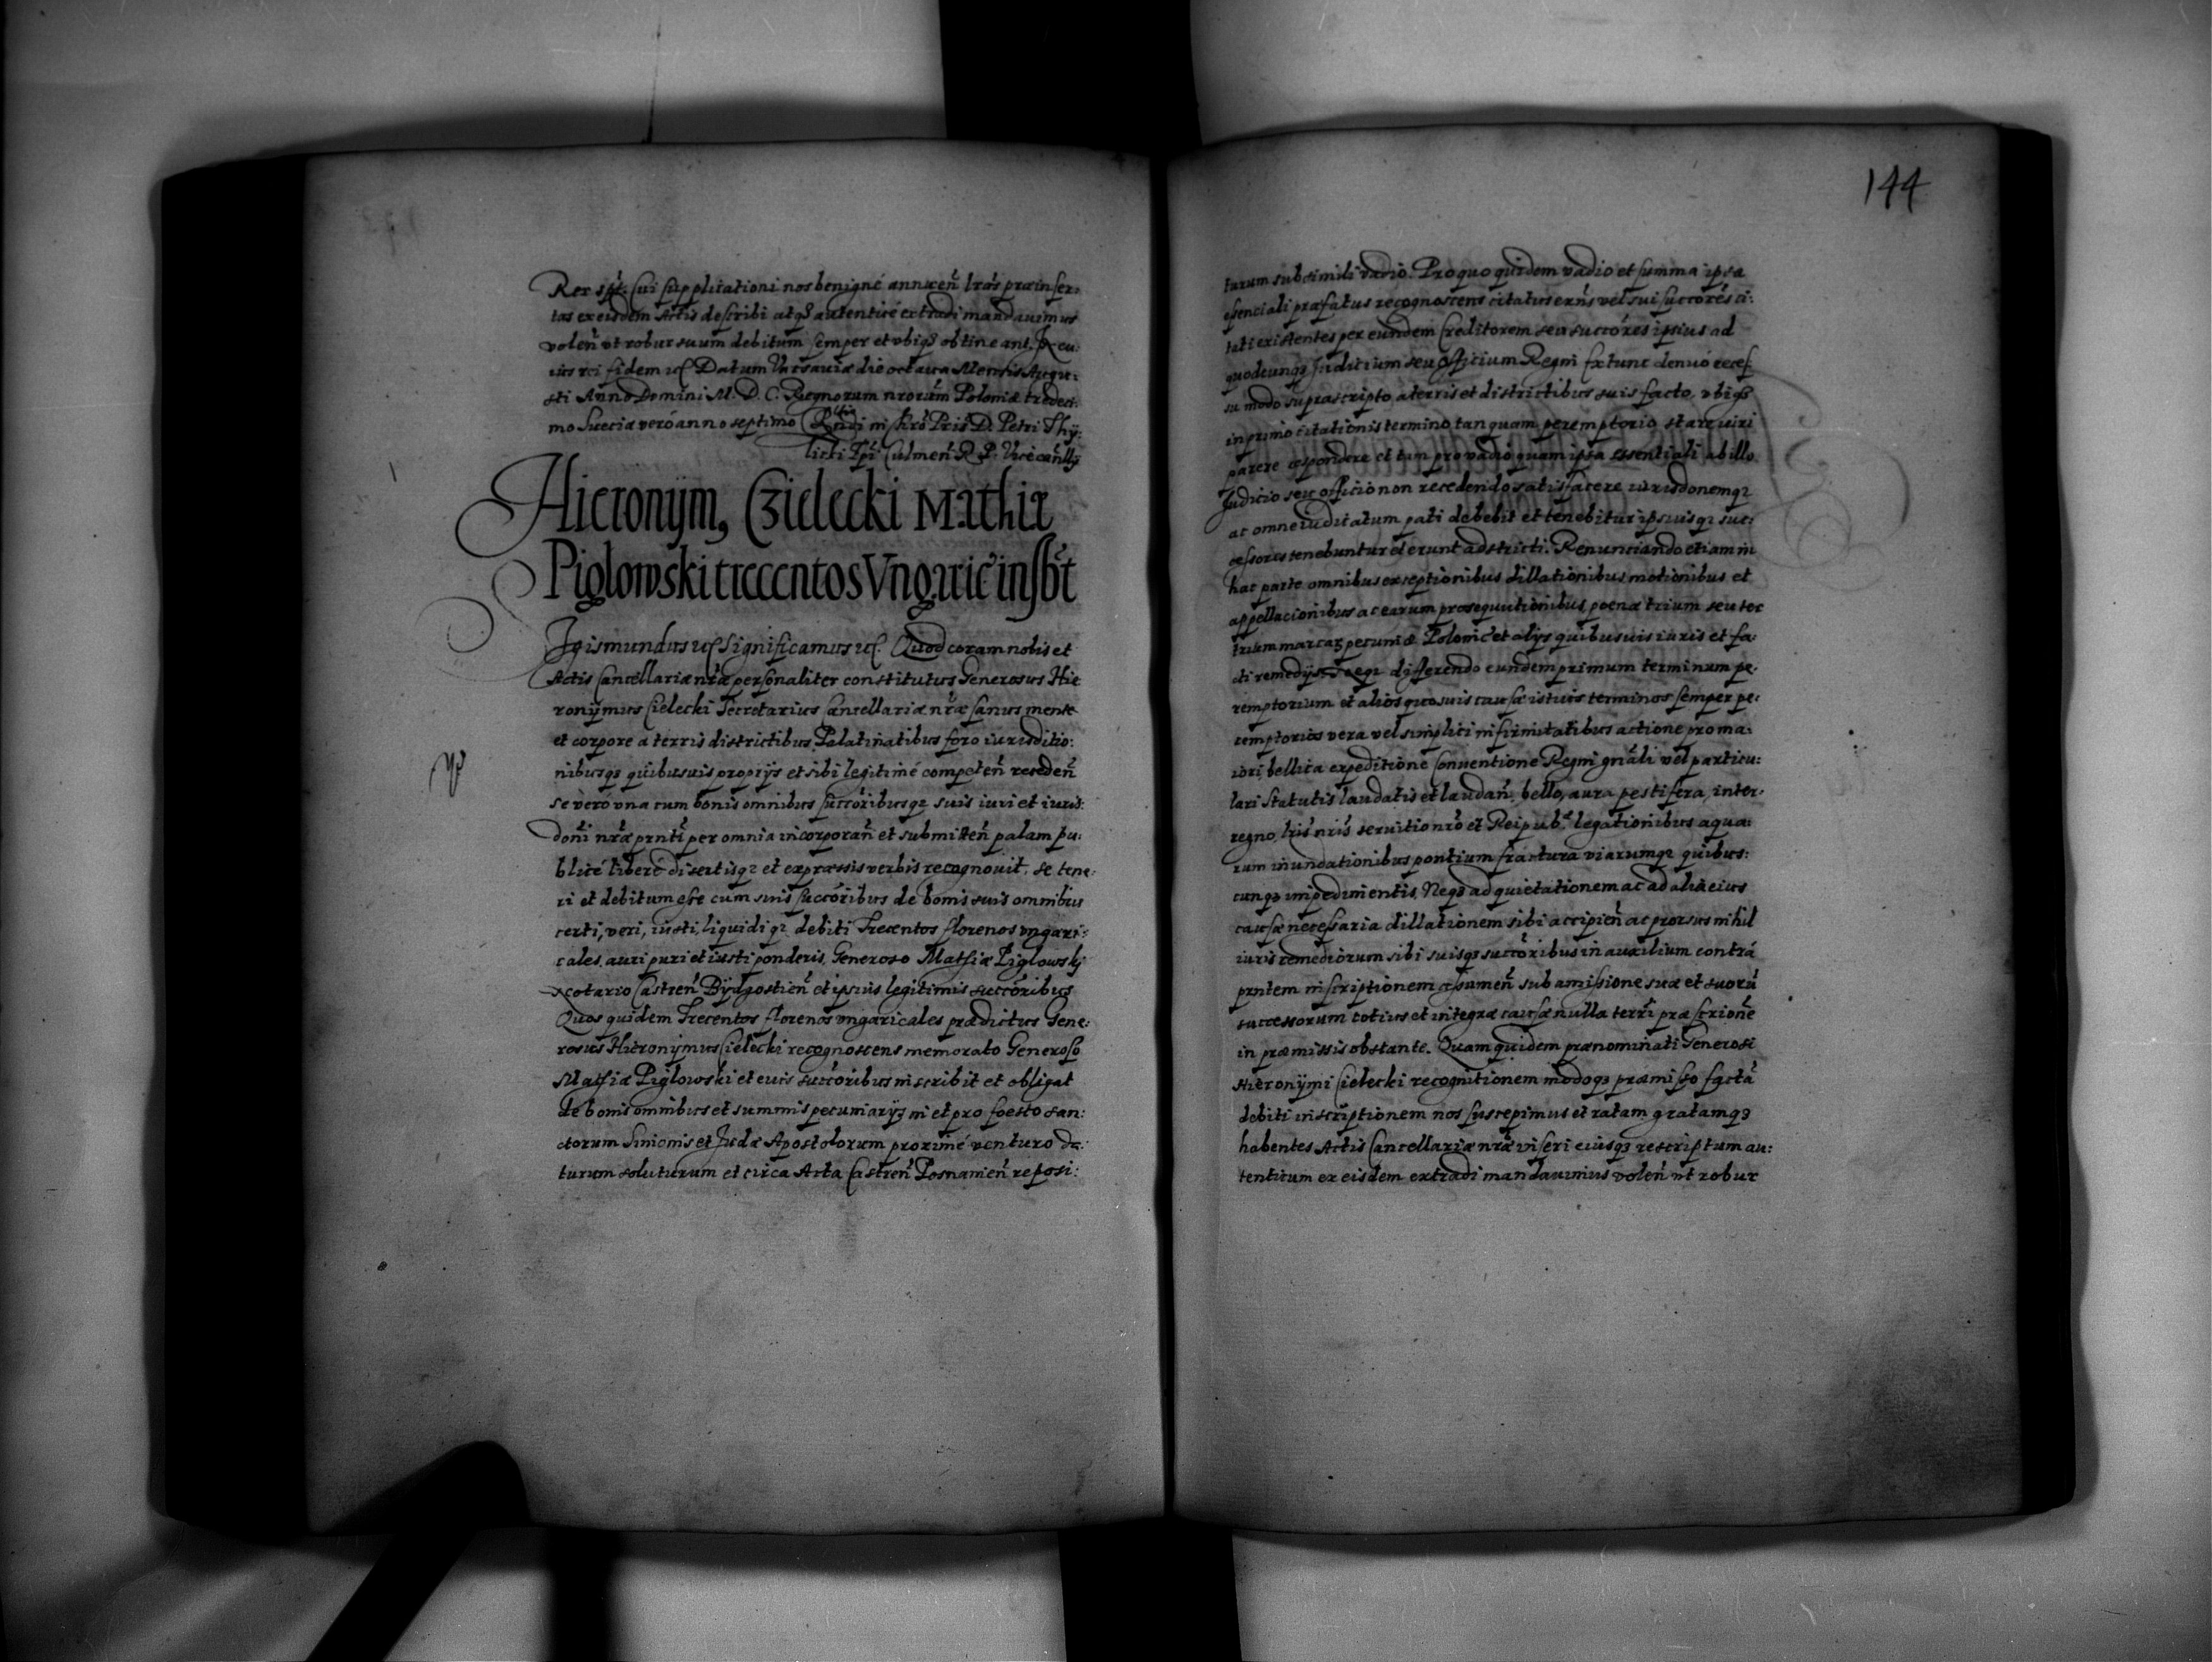 Rex spt. Cui supplicationi nos benigné annuen̄ lrās præinser:
tas ex eisdem Actis describi atq3 autenticé extradi mandauimus
volen̄ vt robur suum debitum semper et vbiq3 obtineant. In cu:
ius rei fidem ect Datum Varsauiæ die octaua Mensis Augu:
sti Anno Domini M. D. C. Regnorum nrōrum Poloniæ tredeci:
mo Sueciæ veró anno septimo Rndi in Chrō Pris D. Petri Thy:
licki Epī Culmen̄ R. P. Vicecancllÿ
Hieronÿm9 Czielecki Mathiæ
Piglowski trecentos Vngaric̄ inscbt̄
Sigismundus ect Significamus ect. Quod coram nobis et
Actis Cancellariæ nrǣ personaliter constitutus Generosus Hie
ronÿmus Cielecki Secretarius Cancellariæ nrǣ sanus mente
et corpore a terris districtibus Palatinatibus foro iurisditio:
nibusq3 quibusuis proprijs et sibi legitimé competen̄ receden̄
se veró vna cum bonis omnibus succōribusq3 suis iuri et iuris:
doni nrǣ prnti per omnia incorporan̄ et submitten̄ palam pu:
blicé liberé disertisq3 et expræssis verbis recognouit, se tene:
ri et debitum esse cum suis succōribus de bonis suis omnibus
certi, veri, iusti, liquidi q3 debiti Trecentos florenos vngari:
cales auri puri et iusti ponderis, Generoso Mathiæ Piglowskj
Notario Castren̄ Bÿdgostien̄ et ipsius legitimis succōribus
Quos quidem Trecentos florenos vngaricales prædictus Gene:
rosus Hieronÿmus Cielecki recognoscens memorato Generoso
Mathiæ Piglowski et eius succōribus inscribit et obligat
de bonis omnibus et summis pecuniarÿs in et pro foesto San:
ctorum Simonis et Judæ Apostolorum proximé venturo da:
turum soluturum et circa Acta Castren̄ Posnanien̄ reposi:
144
turum sub simili vadio. Pro quo quidem vadio et summa ipsa
essenciali præfatus recognoscens citatus exns̄ vel sui succōres ci:
tati existentes per eundem Creditorem seu succōres ipsius ad
quodcunq3 Juditium seu Officium Regni Extunc denuó reces:
su modo suprascripto a terris et districtibus suis facto, vbiq3
in primo citationis termino tanquam peremptorio stare viri
parere respondere et tam pro vadio quam ipsa essentiali ab illo
Judicio seu officio non recedendo satisfacere iurisdonemq3
ac omne iudicatum pati debebit et tenebitur ipsiusq3 suc:
cessores tenebuntur et erunt adstricti. Renunciando etiam in
hac parte omnibus exceptionibus dillationibus motionibus et
appellacionibus ac earum prosequutionibus poenæ trium seu ter
trium marcar̄ pecuniæ Polonic̄ et alÿs quibusuis iuris et fa:
cti remedÿs. Neq3 differendo eundem primum terminum pe:
remptorium et alios quosuis causæ istius terminos semper pe:
remptorios vera vel simplici infirmitatibus actione pro ma:
iori, bellica expeditione Conuentione Regni gnāli vel particu:
lari Statutis laudatis et laudan̄, bello, aura pestifera, inter:
regno, lris̄ nris̄ seruitio nrō et Reipub. legationibus aqua:
rum inundationibus pontium fractura viarumq3 quibus:
cunq3 impedimentis. Neq3 ad quietationem ac ad alia eius
causæ necessaria dillationem sibi accipien̄ ac prorsus nihil
iuris remediorum sibi suisq3 succōribus in auxilium contrá
prntem inscriptionem assumen̄ sub amissione suæ et suorū
successorum totius et integræ causæ nulla terrī præscrione
in præmissis obstante. Quam quidem prænominati Generosi
Hieronÿmi Cielecki recognitionem modoq3 præmisso factā
debiti inscriptionem nos suscepimus et ratam gratamq3
habentes Actis Cancellariæ nrǣ inseri eiusq3 rescriptum au:
tenticum ex eisdem extradi mandauimus volen̄ vt robur